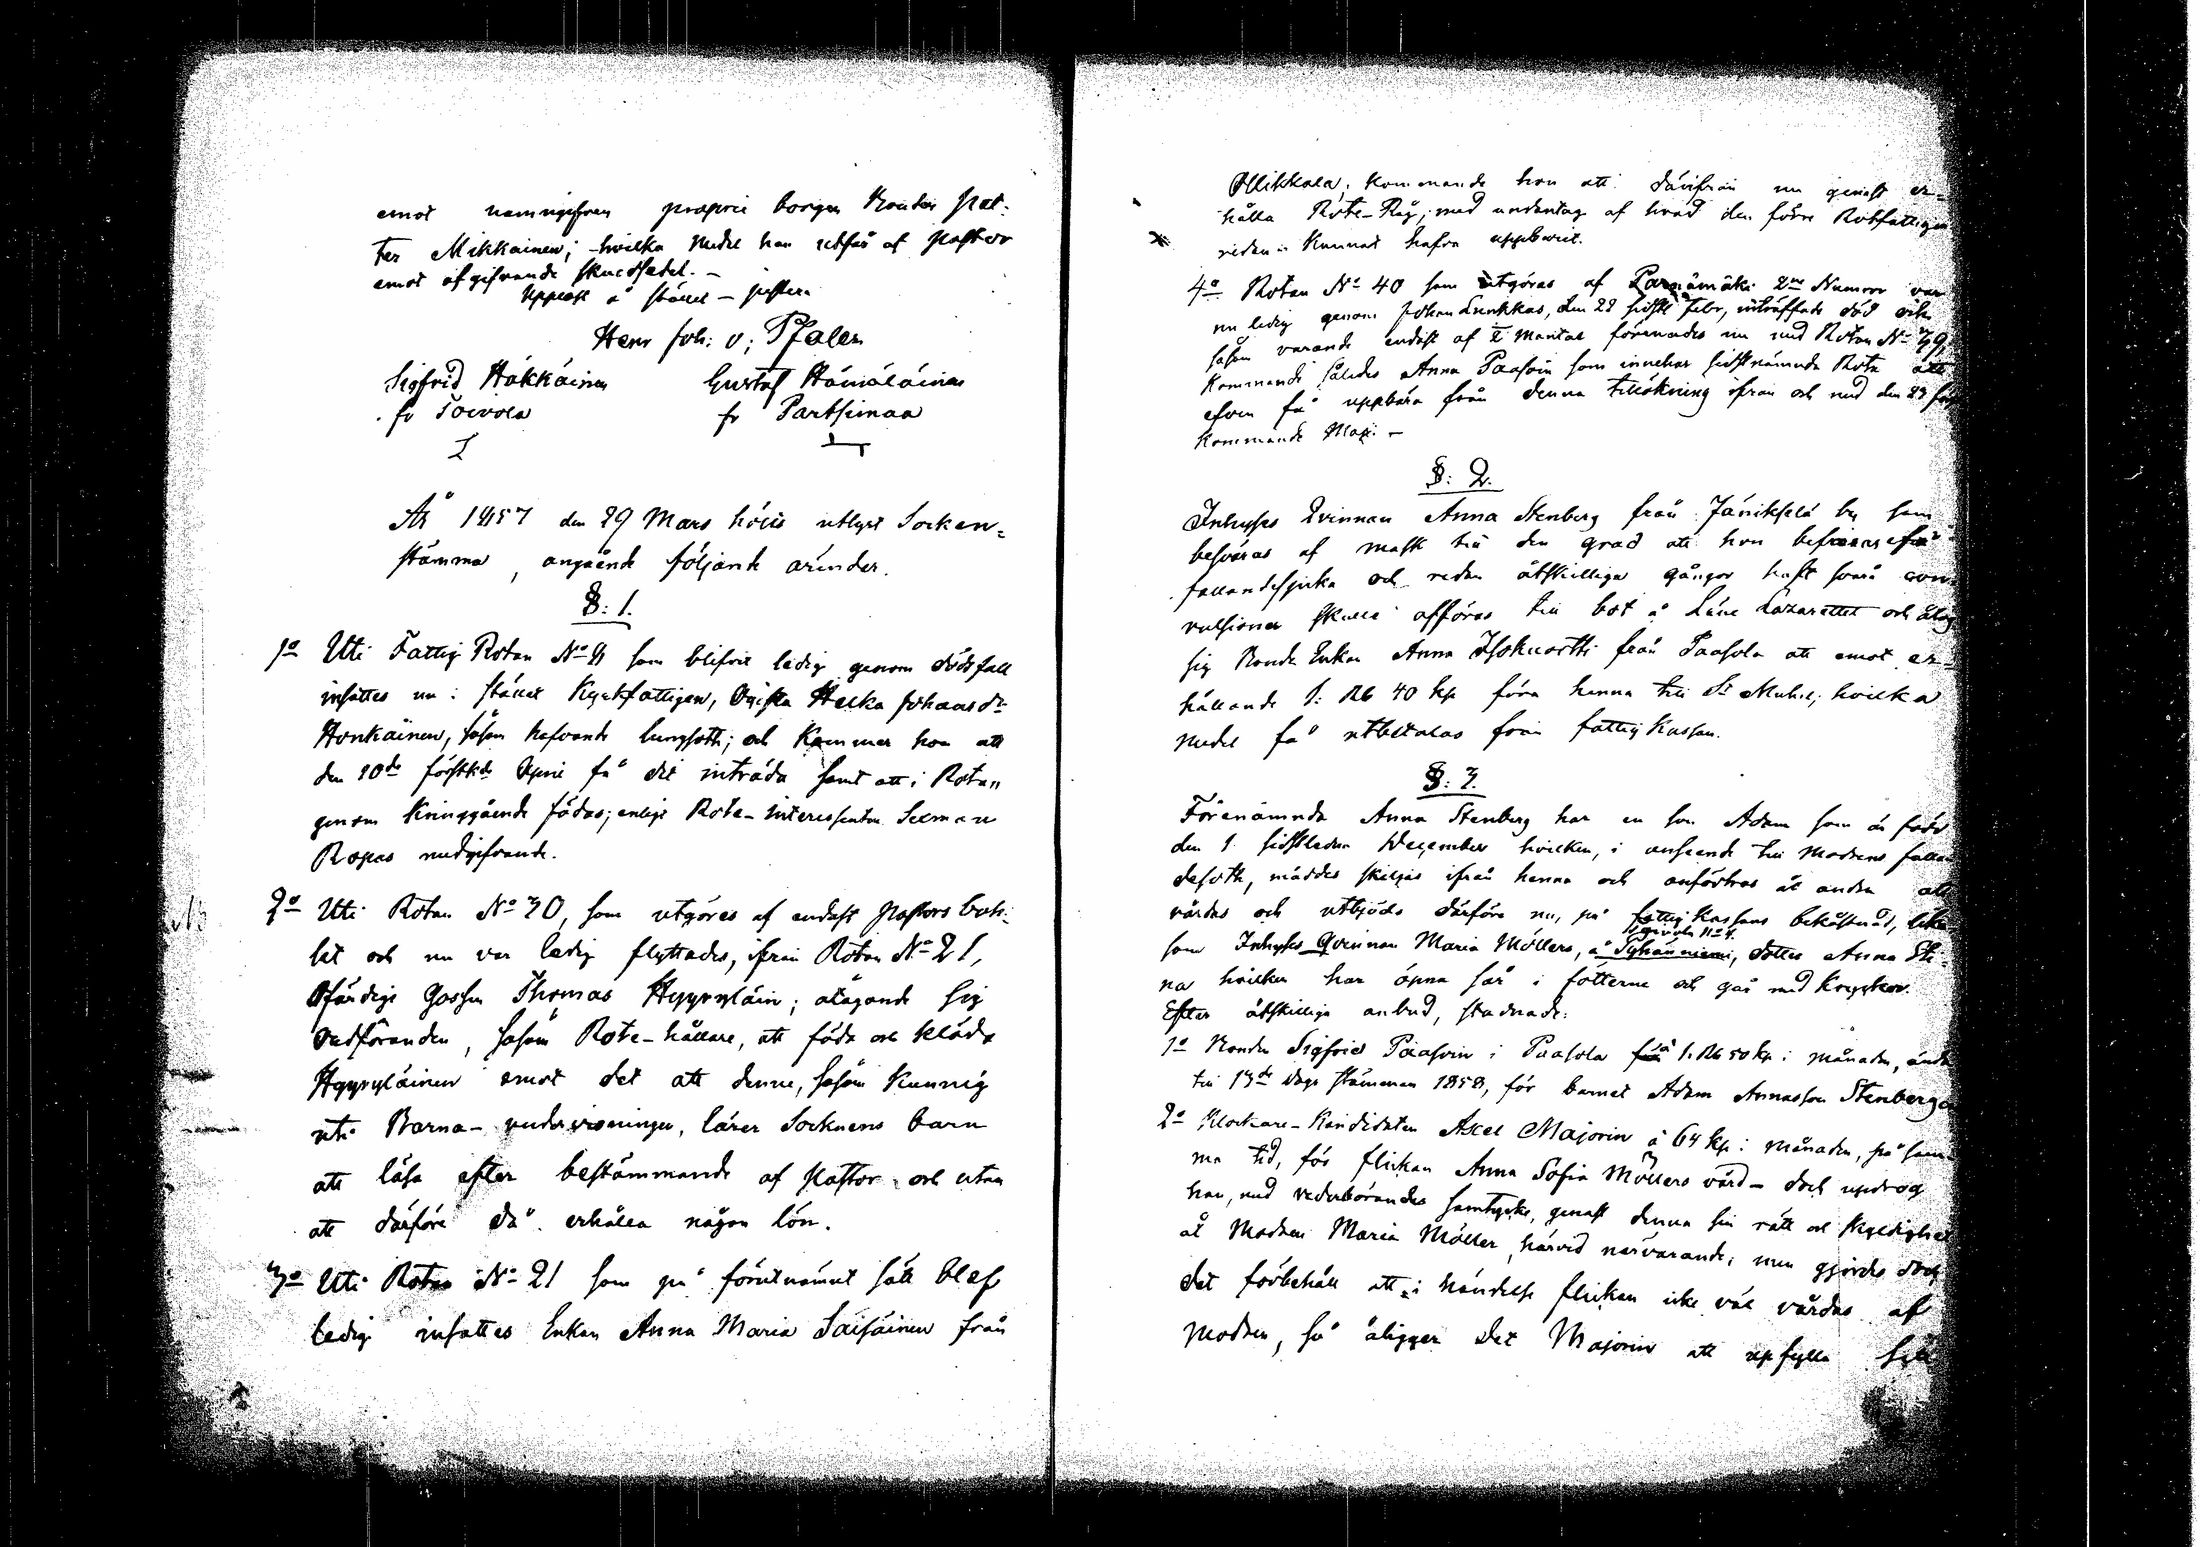 emot namngifven proprie borgen Bonden Pet-
ter Mikkainen; hvilka medel han utfår af Pastor
emot afgifvande skuldsedel. -
Uppläst å stället - justera
Henr Joh: v; Pfaler
Sigfrid Häkkäinen Gustaf Hämäläinen
fr Toivola fr Partsimaa
År 1857 den 29 Mars hölls utlyst Socken=
stämma, angående följande ärender.
§: 1.
1o Uti Fattig Rotan No 8 som blifvit ledig genom dödsfall
insattes nu i stället Kyrkfattigen, Helka Johansdr
Honkainen, såsom hafvande lungsoth; och kommer hon att
den 10de förstkde April få det inträda samt att i Rotan
genom kringgående födas; enligt Rote-interessenten Seeman
Ropas medgifvande.
2o Uti Rotan No 30, som utgöres af endast Pastors bohl:
let och nu var ledig flyttades, ifrån Rotan No 21,
Ofärdige Gossen Thomas Hyyryläin; åtagande sig
Ordföranden, såsom Rote-hållare, att föda och kläda
Hyyryläinen emot det att denne, såsom kunnig
uti Barna-undervisningen, lärer Socknens barn
att läsa efter bestämmande af Pastor och utan
att därföre då erhålla någon lön.
3o Uti Rotan No 21 som på förutnämnt sätt blef
ledig insattes Enkan Anna Maria Saisäinen från
Ollikkala; kommande hon att därifrån nu genast er=
hålla Rote-Råg; med undantag af hvad den förre Rotfattigen
redan kunnat hafva uppburit.
4o Rotan No 40 som utgöres af Parnämäki 2ne Numror var
nu ledig genom Johan Lunkkas, den 28 sistl. Febr, inträffade död och
såsom varande endast af Mantal förenades nu med Rotan No 39,
kommande således Anna Paasoin som innehar sistnämnda Rota att
efven få uppbära från denna tillökning ifrån och med den 23 först
kommande Maji. -
§: 2.
Inhyses Qvinnan Anna Stenberg från Jänikselä by som
besväras af mask till den grad att hon befaras få
fallandesjuka och redan åtskilliga gångor haft svåra con
vulsioner skulle afföras till bot å Läns Lazarettet och åtog
sig Bonde Enkan Anna Isokuortti från Paasola att emot er=
hållande 1: Rb 40 kp föra henne till St Michel; hvilka
medel få utbetalas från fattig Kassan.
§: 3.
Förenämnda Anna Stenberg har en son Adam som är född
den 1 sistledne December hvilken, i anseende till Modrens fallan
desoth, måddes skiljas ifrån henne och anförtros åt andra att
vårdas och utbjöds därföre nu, på fattig Kassans bekostnad, lika
som Inhyses Qvinnan Maria Möllers, å Pyhänniemi, dotter Anna Sti=
na hvilken har öpna sår i fötterne och går med kryckor.
Efter åtskilliga anbud, stadnade:
1o Bonden Sigfrid Paasoin i Paasola å 1. Rb 50 kp i månaden, ända
till 13de dags stämman 1858, för barnet Adam Annasson Stenberg
2o Klockare-Kandidaten Axel Majorin à 64 kp i månaden, på sam-
ma tid, för flickan Anna Sofia Möllers vård - doch updrog
han, med vederbörandes samtycke, genast denna sin rätt och skyldighet
åt Modren Maria Möller, härvid närvarande; men gjordes doch
det förbehåll att, i händelse flickan icke väl vårdas af
Modren, så åligger det Majorin att upfylla sitt